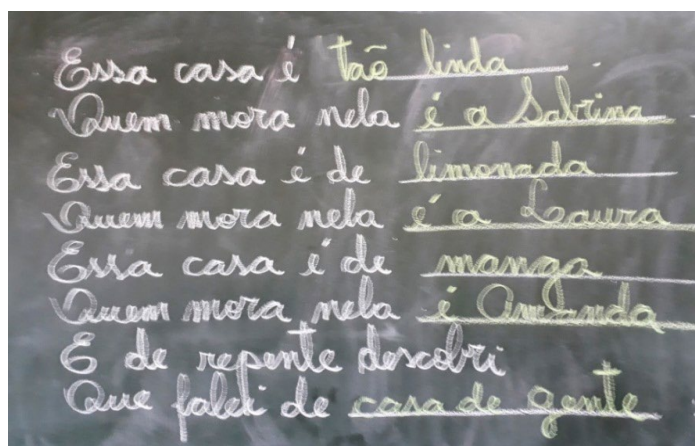 Essa casa é tão linda.
Quem mora nela é a Sabrina
Essa casa é de limonada
Quem mora nela é a Laura
Essa casa é de manga
Quem mora nela é Amanda
E de repente descobri
Que falei de casa de gente